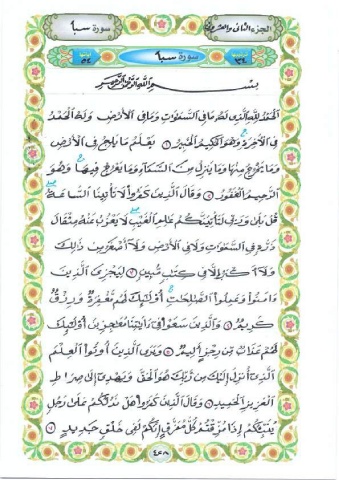 الجزء الثاني والعشرون
سورة سبأ
سورة سبأ
بسم الله الرحمن الرحيم
الحمد لله الذي له ما في السماوات وما في الأرض وله الحمد
في الآخرة وهو الحكيم الخبير ١ يعلم ما يلج في الأرض
وما يخرج منها وما ينزل من السماء وما يعرج فيها وهو
الرحيم الغفور ٢ وقال الذين كفروا لا تأتينا الساعة
قل بلى وربي لتأتينكم عالم الغيب لا يعزب عنه مثقال
ذرة في السماوات ولا في الأرض ولا أصغر من ذلك
ولا أكبر إلا في كتاب مبين ٣ ليجزي الذين
ءامنوا وعملوا الصالحات أولئك لهم مغفرة ورزق
كريم ٤ والذين سعوا في ءاياتنا معاجزين أولئك
لهم عذاب من رجز أليم ٥ ويرى الذين أوتوا العلم
الذي أنزل إليك من ربك هو الحق ويهدي إلى صراط
العزيز الحميد ٦ وقال الذين كفروا هل ندلكم على رجل
ينبئكم إذا مزقتم كل ممزق إنكم لفي خلق جديد ٧
٤٢٨